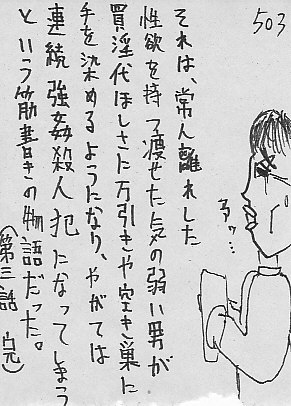 503
それは、常人離れした
性欲を持つ痩せた気の弱い男が
買淫代ほしさに万引きや空き巣に
手を染めるようになり、やがては
連続強姦殺人犯になってしまう
という筋書きの物語だった。
(第三話 完)
るッ…